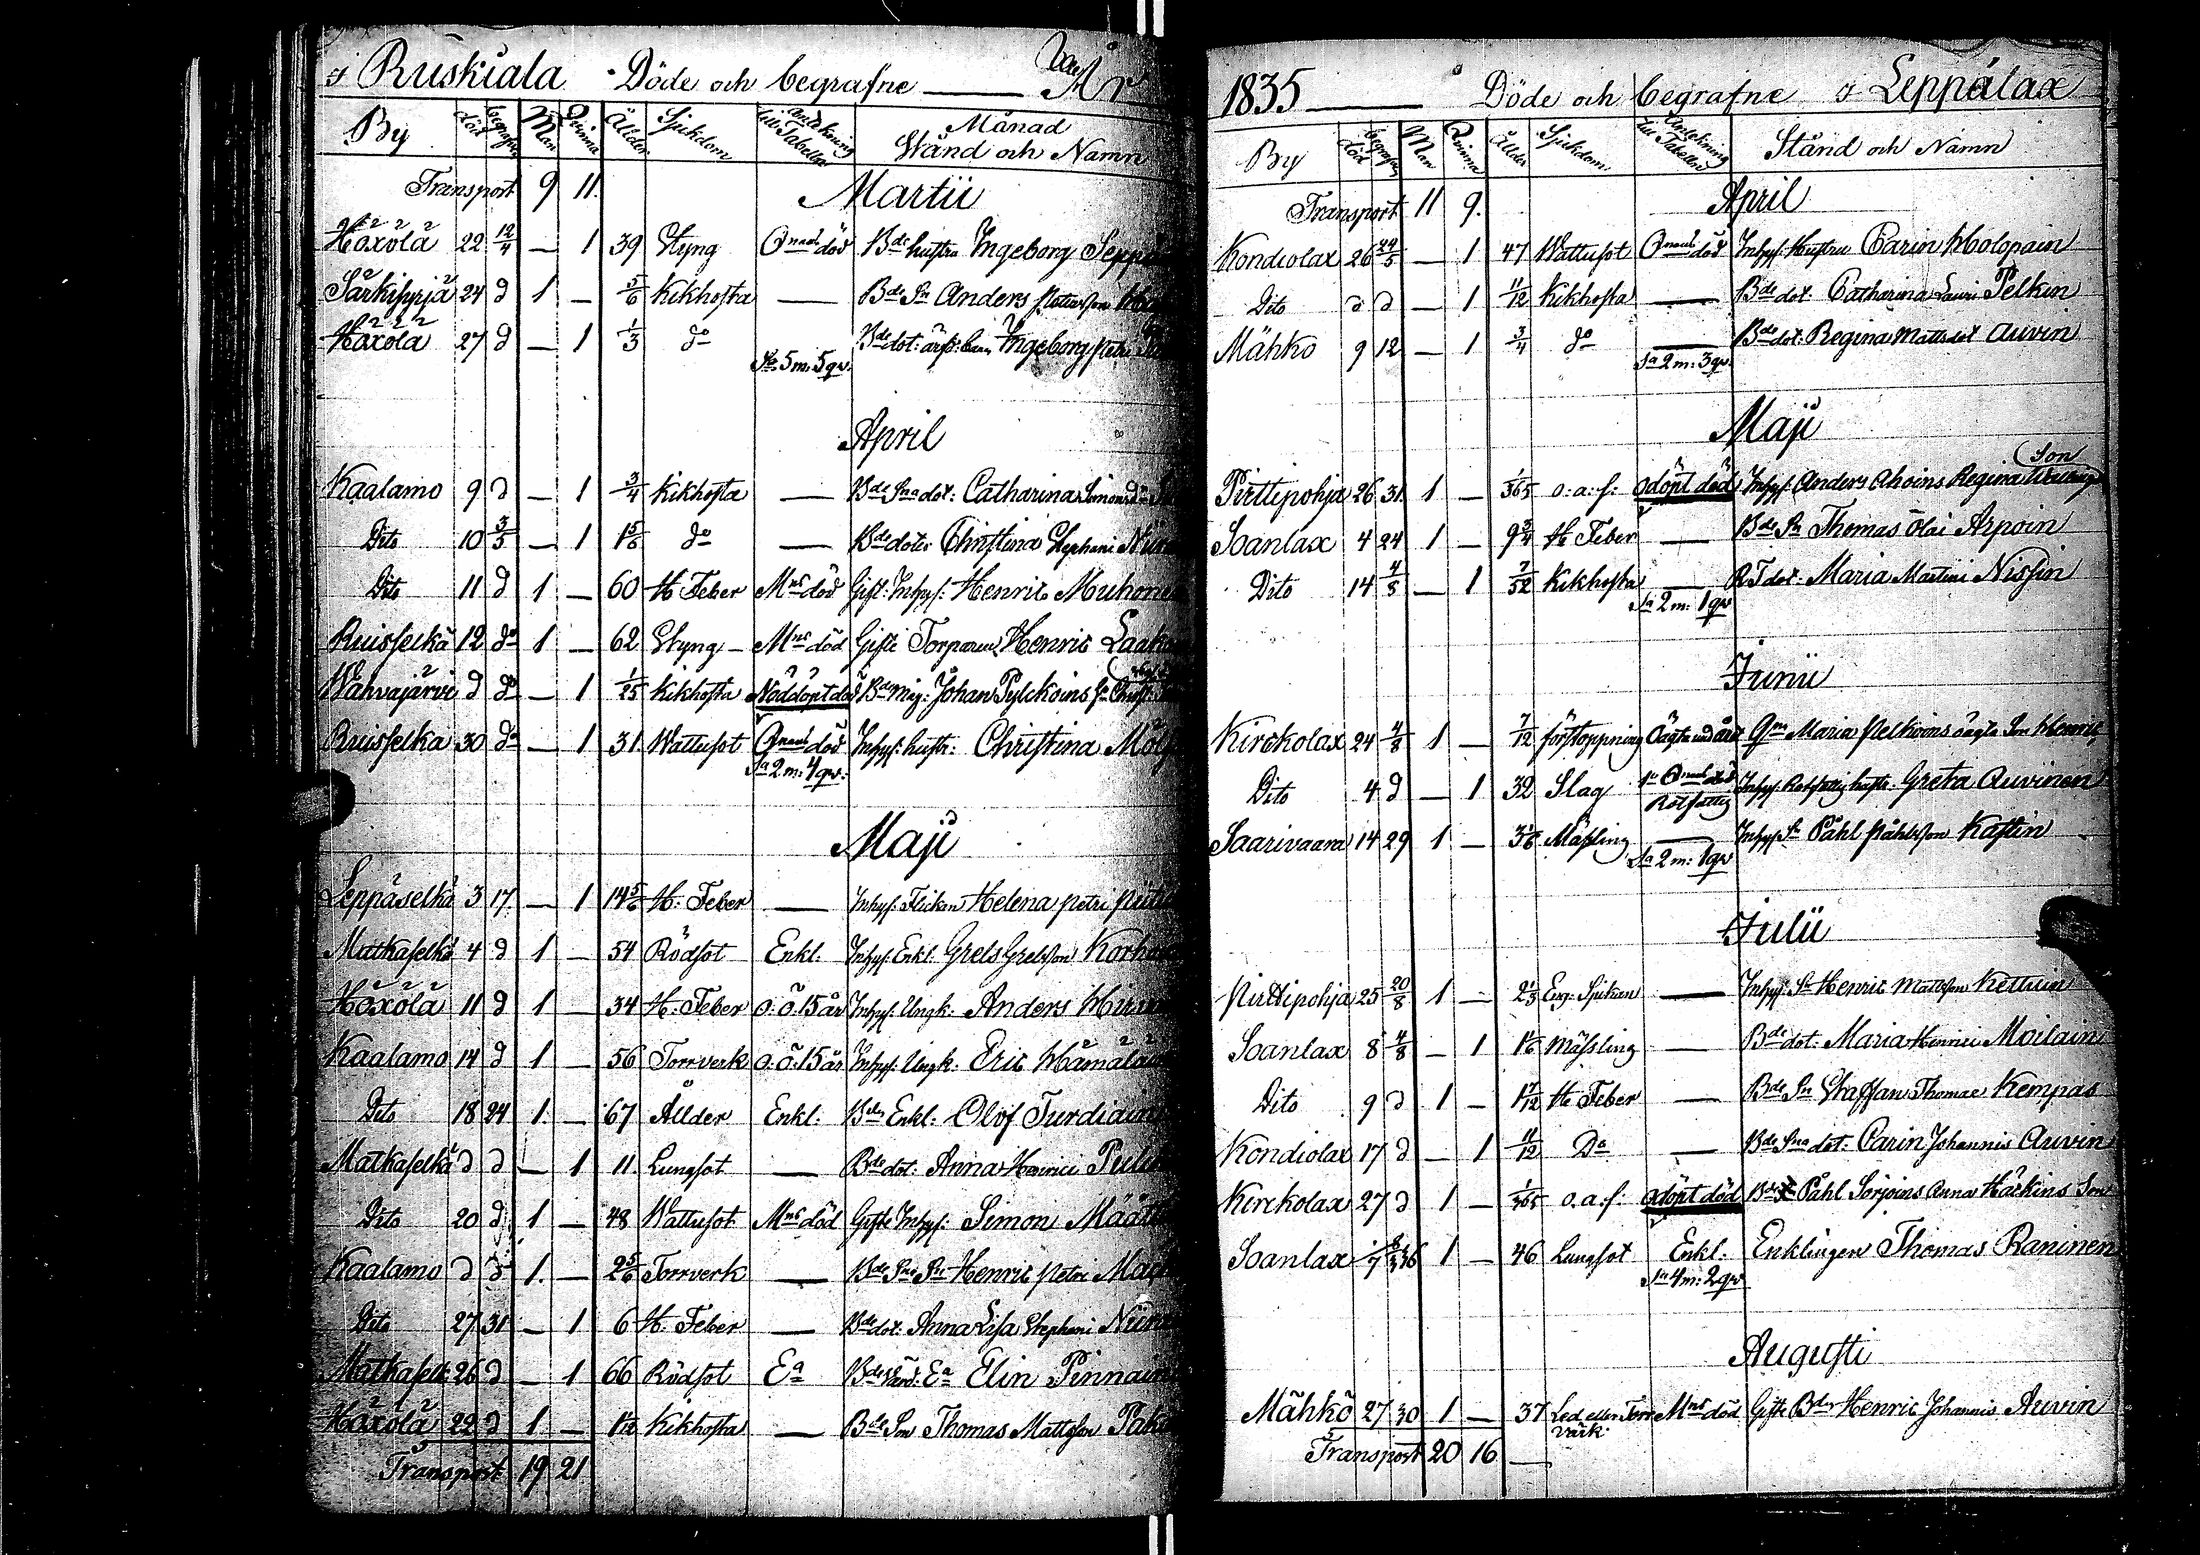 i Ruskiala Döde och begrafne År
By död begrafne Man Qvinna Ålder Sjukdom Anteckning till Tabellen Månad Stånd och Namn
Transport 9 11. Martii
Häxölä 22 12/4 — 1 39 Styng Qnans död Bde hustru Ingeborg
Särkisyrjä 24 d 1 — 5/6 Kikhosta — Bde Sn Anders
Häxölä 27 d — 1 1/3 do Bde dot: Ingeborg Petri
Sa 5 m: 5 qv.
April
Kaalamo 9 d — 1 3/4 Kikhosta — Bde Sns dot: Catharina Simonsd:
Dito 10 3/5 — 1 1 5/6 do — Bde doter Christina Stephani
Dito 11 d 1 — 60 H. Feber Mns död Gift. Inhys: Henric Muhonen
Ruisselkä 12 do 1 — 62 Styng — Mns död Gifte Torparen Henric
Wahvajärvi d do — 1 1/25 Kikhosta Nöddöpt död Bde måg: Johan Pylckoins
Ruisselka 30 do — 1 31 Wattusot Qnans död Inhys: hustr: Christina
Sa 2 m: 4 qv:
Maji
Leppäselkä 3 17 — 1 14 5/6 H. Feber — Inhys: Flickan Helena Petri
Matkaselkä 4 d 1 — 54 Rödsot Enkl. Inhys: Enkl: Grels Grelsson
Häxölä 11 d 1 — 34 H. Feber o.ö. 15 år Inhys: Ungk: Anders
Kaalamo 14 d 1 — 56 Torrverk o.ö. 15 år Inhys: Ungk: Eric
Dito 18 24 1 — 67 Ållder Enkl: Bde Enkl: Olof Turdiain
Matkaselkä d d — 1 11 Lungsot — Bde dot: Anna Henrici
Dito 20 d 1 — 48 Wattusot Mns död Gifte Inhys: Simon
Kaalamo d d 1 — 2 5/6 Torrverk — Bde Sns Sn Henric Petri
Dito 27 31 — 1 6 H. Feber — Bde dot: Anna Lisa Stephani
Matkaselk 26 d — 1 66 Rödsot Ea Bde Ea Elin Pinnain
Häxölä 22 d 1 — 1 1/12 Kikhosta — Bde Son Thomas Mattsson
Transport 19 21
1835 Döde och begrafne i Leppälax
By död begrafne Man Qvinna Ålder Sjukdom Anteckning till Tabellen Stånd och Namn
Transport 11 9. April
Kondiolax 26 24/5 — 1 47 Wattusot Qnans död Inhys: Hustru Carin Holopain
Dito d d — 1 11/12 Kikhosta — Bde dot. Catharina Lauri Pelkin
Mähkö 9 12 — 1 3/4 do — Bde dot. Regina Mattsdot Auvin
Sa 2 m: 3 qv.
Maji
Pirttipohja 26 31 1 — 1/365 o.a.f. odöpt död Inhys: Anders Ahoins Regina Son
Soanlax 4 24 1 — 9 3/4 H. Feber — Bde Sn Thomas Olai Arpoin
Dito 14 4/5 — 1 7/52 Kikhosta — RT dot. Maria Martini Nissin
Sa 2 m: 1 qv
Junii
Kirckolax 24 4/8 1 — 7/12 förstoppning Qn Maria Pelkoins oägta Son Henric
Dito 4 d — 1 32 Slag Rotfattig Inhys: Rotfattig hustr: Greta Auvinen
Saarivaara 14 29 1 — Mässling — Inhys: Sn Påhl Påhlsson Kastin
Sa 2 m: 1 qv
Julii
Pirttipohja 25 20/8 1 — 2 1/3 Eng: Sjukan — Inhys: Sn Henric Mattsson Kettuin
Soanlax 8 4/8 — 1 1 1/6 Mässling — Bde dot: Maria Henrici Moilain
Dito 9 d 1 — 1 7/12 H. Feber — Bde Sn Staffan Thomae Kempas
Kondiolax 17 d — 1 11/12 Do — Bde Sns dot: Carin Johannis Auvin
Kirckolax 27 d 1 — 1/365 o.a.f. odöpt död Påhl Sorjoins Anna Häkins Son
Soanlax 1 — 46 Lungsot Enkl: Enklingen Thomas Raninen
Sa 4 m: 2 qv
Augusti
Mähkö 27 30 1 — 37 Led eller Torr Mns död Gifte Bde Henric Johannis Auvin
värk
Transport 20 16 —